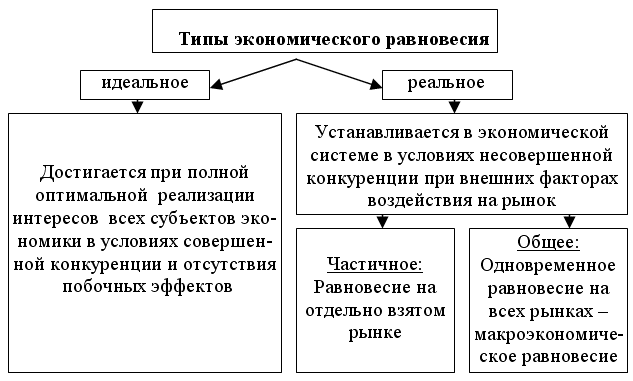 Типы экономического равновесия
идеальное
реальное
Достигается при полной
оптимальной реализации
интересов всех субъектов эко-
номики в условиях совершен-
ной конкуренции и отсутствия
побочных эффектов
Устанавливается в экономической
системе в условиях несовершенной
конкуренции при внешних факторах
воздействия на рынок
Частичное:
Равновесие на
отдельно взятом
рынке
Общее:
Одновременное
равновесие на
всех рынках –
макроэкономиче-
ское равновесие